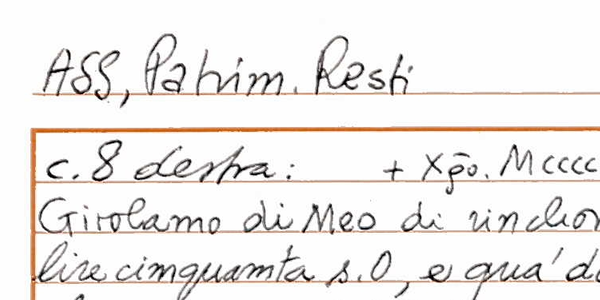 ASS, Patrim. Resti
c. 8 destra: + Xp̄o. Mcccc
Girolamo di Meo di
lire cimquamta s. 0, e qua' d